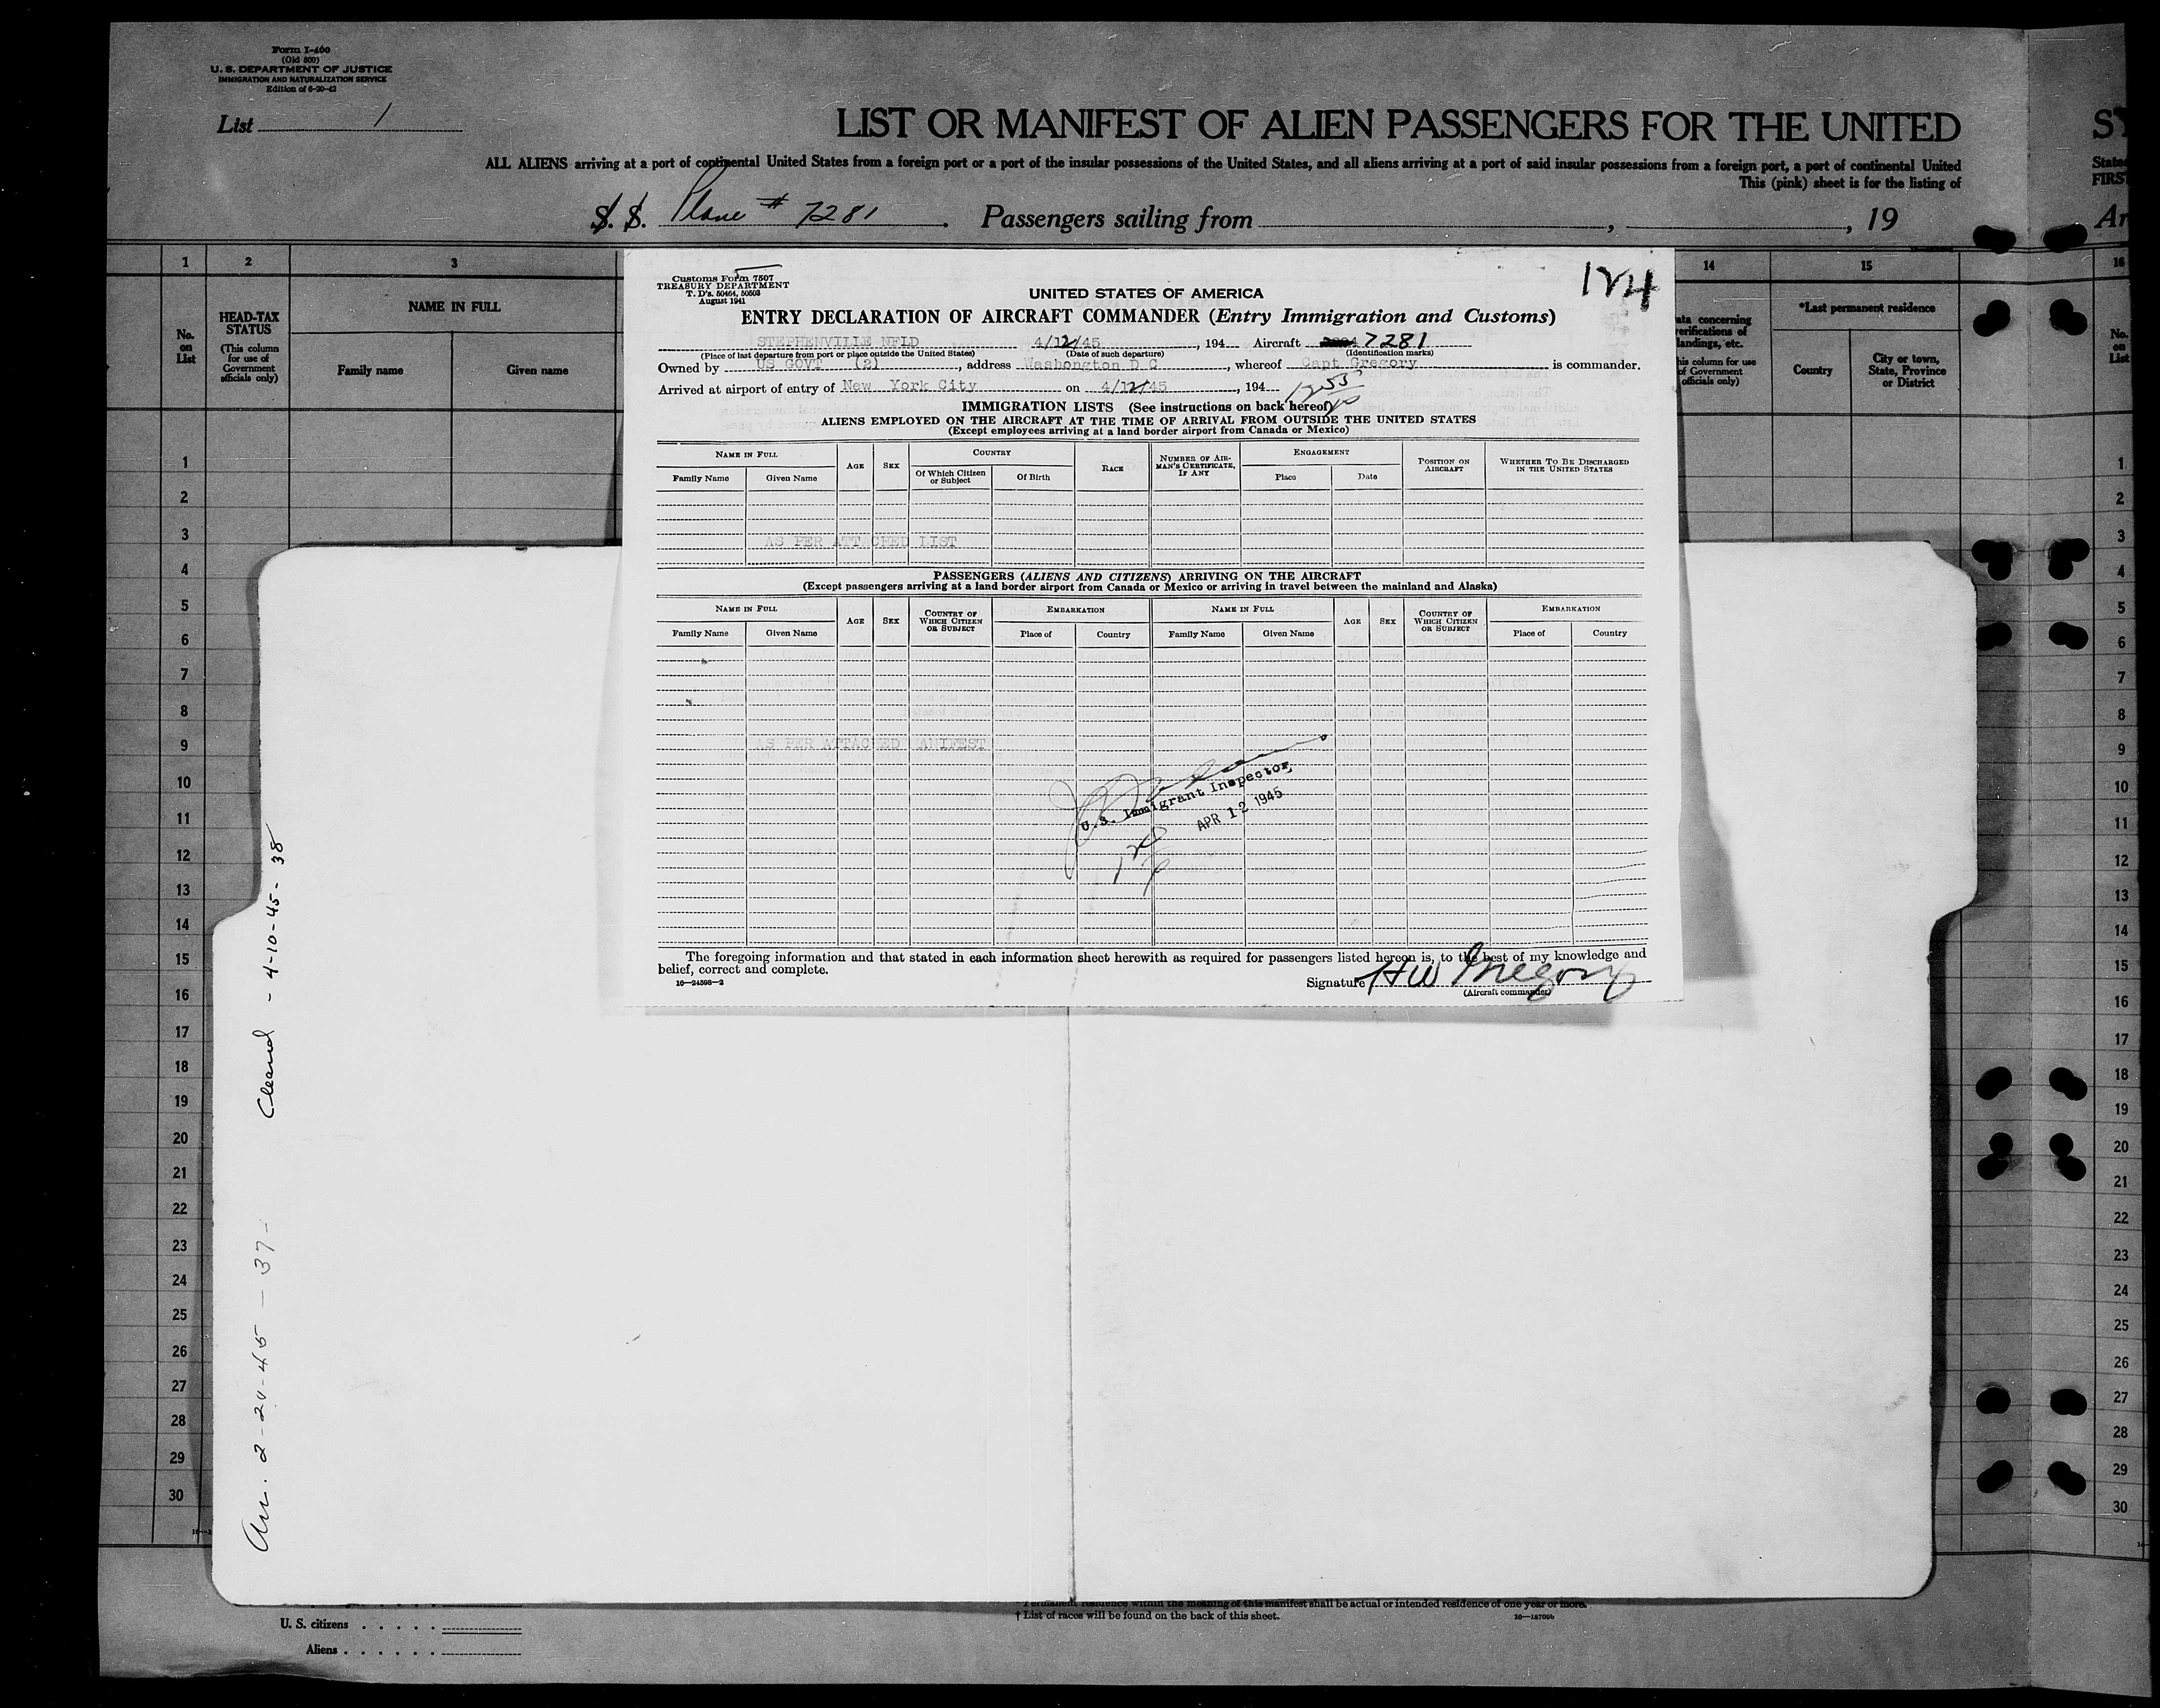 Form I-460
(Old 500)
U. S. DEPARTMENT OF JUSTICE
IMMIGRATION AND NATURALIZATION SERVICE
Edition of 6-20-42
List 1
LIST OR MANIFEST OF ALIEN PASSENGERS FOR THE UNITED
ALL ALIENS arriving at a port of continental United States from a foreign port or a port of the insular possessions of the United States, and all aliens arriving at a port of said insular possessions from a foreign port, a port of continental United
This (pink) sheet is for the listing of
S. S. Plane # 7281. Passengers sailing from , , 19
States
FIRST
Ar
1 2 3 14 15 16
No. on List
HEAD-TAX STATUS
(This column for use of Government officials only)
NAME IN FULL
Family name Given name
*Last permanent residence
Country
City or town, State, Province or District
No. on List
Customs Form 7507
TREASURY DEPARTMENT
T. D's. 50464, 50503
August 1941
124
UNITED STATES OF AMERICA
ENTRY DECLARATION OF AIRCRAFT COMMANDER (Entry Immigration and Customs)
STEPHENVILLE NFLD 4/12/45, 194 Aircraft 7281
(Place of last departure from port or place outside the United States) (Date of such departure) (Identification marks)
Owned by US GOVT (2), address Washongton D C, whereof Capt Gregory is commander.
Arrived at airport of entry of New York City on 4/12/45, 194
IMMIGRATION LISTS (See instructions on back hereof)
ALIENS EMPLOYED ON THE AIRCRAFT AT THE TIME OF ARRIVAL FROM OUTSIDE THE UNITED STATES
(Except employees arriving at a land border airport from Canada or Mexico)
NAME IN FULL AGE SEX COUNTRY RACE NUMBER OF AIRMAN'S CERTIFICATE, IF ANY ENGAGEMENT POSITION ON AIRCRAFT WHETHER TO BE DISCHARGED IN THE UNITED STATES
Family Name Given Name Of Which Citizen or Subject Of Birth Place Date
AS PER ATTACHED LIST
PASSENGERS (ALIENS AND CITIZENS) ARRIVING ON THE AIRCRAFT
(Except passengers arriving at a land border airport from Canada or Mexico or arriving in travel between the mainland and Alaska)
NAME IN FULL AGE SEX COUNTRY OF WHICH CITIZEN OR SUBJECT EMBARKATION NAME IN FULL AGE SEX COUNTRY OF WHICH CITIZEN OR SUBJECT EMBARKATION
Family Name Given Name Place of Country Family Name Given Name Place of Country
AS PER ATTACHED MANIFEST
U. S. Immigrant Inspector
APR 12 1945
The foregoing information and that stated in each information sheet herewith as required for passengers listed hereon is, to the best of my knowledge and
belief, correct and complete.
16—24598—2
Signature HW Gregory
(Aircraft commander)
1
2
3
4
5
6
7
8
9
10
11
12
13
14
15
16
17
18
19
20
21
22
23
24
25
26
27
28
29
30
Arr. 2-20-45-37- Cleared - 4-10-45-38
Permanent residence within the meaning of this manifest shall be actual or intended residence of one year or more.
† List of races will be found on the back of this sheet.
U. S. citizens
Aliens